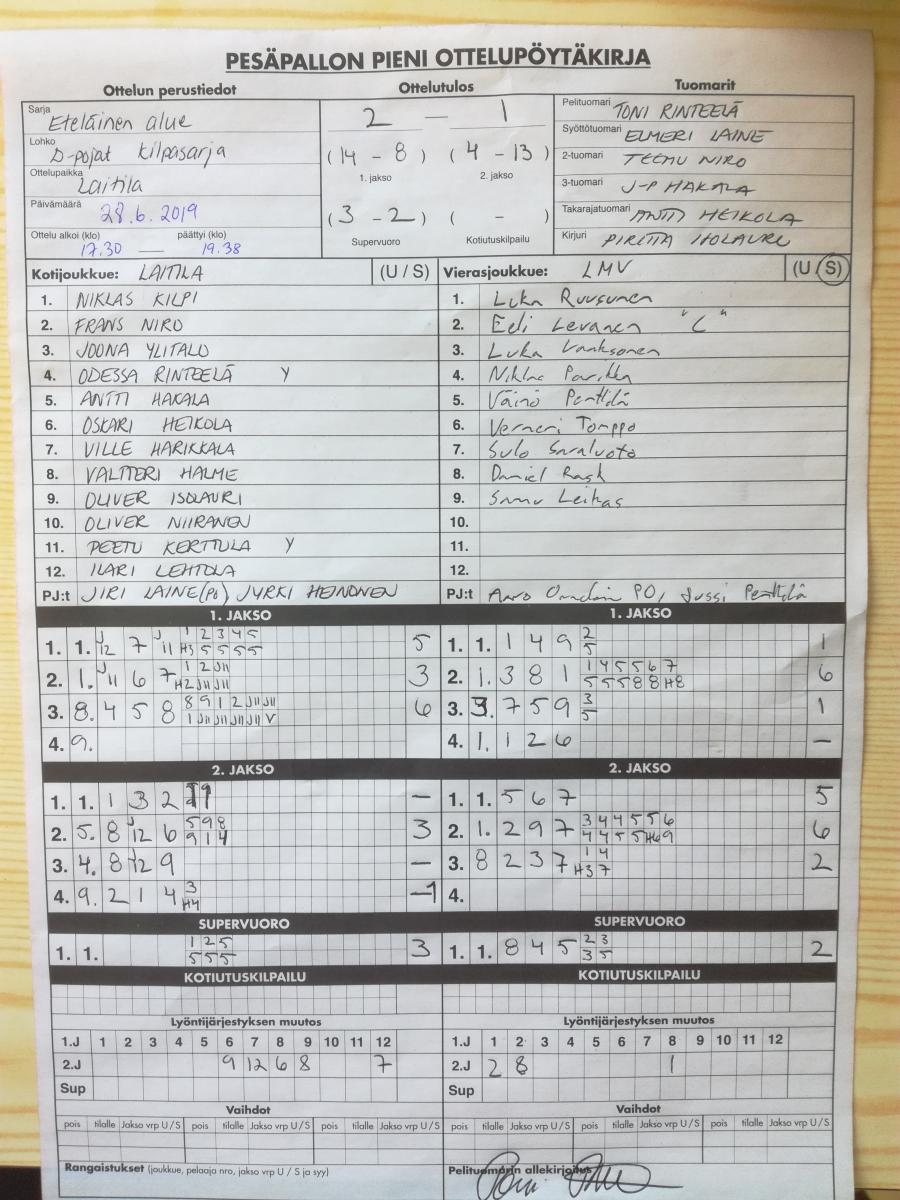 PESÄPALLON PIENI OTTELUPÖYTÄKIRJA
Ottelun perustiedot Ottelutulos Tuomarit
Sarja Eteläinen alue
Lohko D-pojat kilpasarja
Ottelupaikka Laitila
Päivämäärä 28.6.2019
Ottelu alkoi (klo) päättyi (klo)
17.30 — 19.38
2 — 1
(14 - 8) (4 - 13)
1. jakso 2. jakso
(3 - 2) ( - )
Supervuoro Kotiutuskilpailu
Pelituomari TONI RINTEELÄ
Syöttötuomari ELMERI LAINE
2-tuomari TEEMU NIRO
3-tuomari J-P HAKALA
Takarajatuomari ANTTI HEIKOLA
Kirjuri PIRITTA ISOLAURI
Kotijoukkue: LAITILA (U / S)
1. NIKLAS KILPI
2. FRANS NIRO
3. JOONA YLITALO
4. ODESSA RINTEELÄ Y
5. ANTTI HAKALA
6. OSKARI HEIKOLA
7. VILLE HARIKKALA
8. VALTTERI HALME
9. OLIVER ISOLAURI
10. OLIVER NIIRANEN
11. PEETU KERTTULA Y
12. ILARI LEHTOLA
PJ:t JIRI LAINE (PO) JYRKI HEINONEN
Vierasjoukkue: LMV (U / S)
1. Luka Ruusunen
2. Eeli Levanen "C"
3. Luka
4. Niklas Parikka
5. Väinö Penttilä
6. Verneri Tomppo
7. Sulo Savaluoto
8. Daniel Rask
9. Samu Leikas
10.
11.
12.
PJ:t Aaro PO, Jussi Penttilä
1. JAKSO
1. 1. J12 7 J11 1 2 3 4 5 5
H3 5 5 5 5
2. 1. J11 6 7 1 2 J11 3
H2 J11 J11
3. 8. 4 5 8 8 9 1 2 J11 J11 6
1 J11 J11 J11 J11 V
4. 9.
1. JAKSO
1. 1. 1 4 9 2 1
5
2. 1. 3 8 1 1 4 5 5 6 7 6
5 5 5 8 8 H8
3. 3. 7 5 9 3 1
5
4. 1. 1 2 6 —
2. JAKSO
1. 1. 1 3 2 —
2. 5. 8 J12 6 5 9 8 3
9 1 4
3. 4. 8 12 9 —
4. 9. 2 1 4 3 1
H4
2. JAKSO
1. 1. 5 6 7 5
2. 1. 2 9 7 3 4 4 5 5 6 6
4 4 5 5 H6 9
3. 8 2 3 7 1 4 2
H3 7
4.
SUPERVUORO
1. 1. 1 2 5 3
5 5 5
SUPERVUORO
1. 1. 8 4 5 2 3 2
3 5
KOTIUTUSKILPAILU
KOTIUTUSKILPAILU
Lyöntijärjestyksen muutos
1.J 1 2 3 4 5 6 7 8 9 10 11 12
2.J 9 12 6 8 7
Sup
Lyöntijärjestyksen muutos
1.J 1 2 3 4 5 6 7 8 9 10 11 12
2.J 2 8 1
Sup
Vaihdot
pois tilalle Jakso vrp U / S pois tilalle Jakso vrp U / S pois tilalle Jakso vrp U / S
Vaihdot
pois tilalle Jakso vrp U / S pois tilalle Jakso vrp U / S pois tilalle Jakso vrp U / S
Rangaistukset (joukkue, pelaaja nro, jakso vrp U / S ja syy)
Pelituomarin allekirjoitus